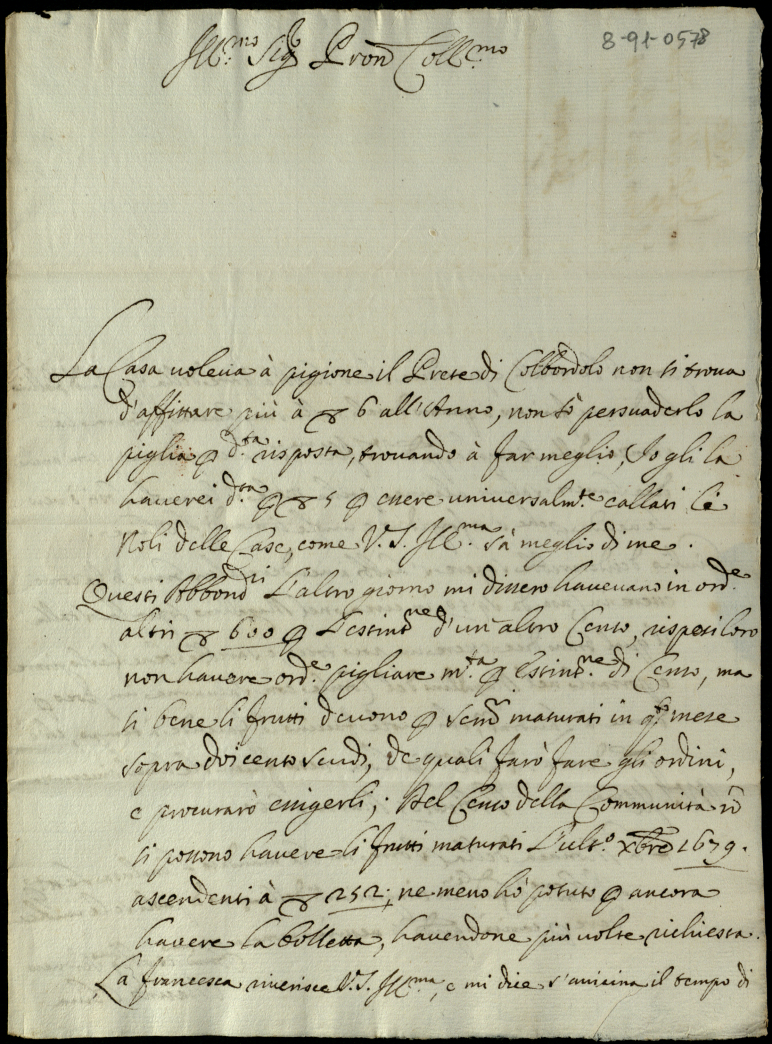 8-91-0578
Ill.mo Sig.r Pron Coll.mo
La Casa voleva à pigione il Prete di Colbordolo non si trova
d'affittare più à ꝸ 6 all'Anno, non sò persuaderlo la
piglia ꝑ d.ta risposta, trovando à far meglio, Io gli la
haverei d.ta ꝑ ꝸ 5 ꝑ essere universalm.te callati li
Noli delle Case, come V.S. Ill.ma sà meglio di me.
Questi Abbond.ni L'altro giorno mi dissero havevano in ord.e
altri ꝸ 600 ꝑ L'estint.ne d'un'altro Censo, risposi loro
non havere ord.e pigliare m.ta ꝑ Estint.ne di Censo, ma
si bene li frutti devono ꝑ maturati in mese
sopra doicento scudi, de quali farò fare gli ordini,
e procurarò esigerli; Del Censo della Communità nō
si possono havere li frutti maturati L'ult.o Xbre 1679.
ascendenti à ꝸ 252; ne meno hò potuto ꝑ ancora
havere la bolletta, havendone più volte richiesta.
La Francesca riverisce V.S. Ill.ma, e mi dice s'avicina il tempo di